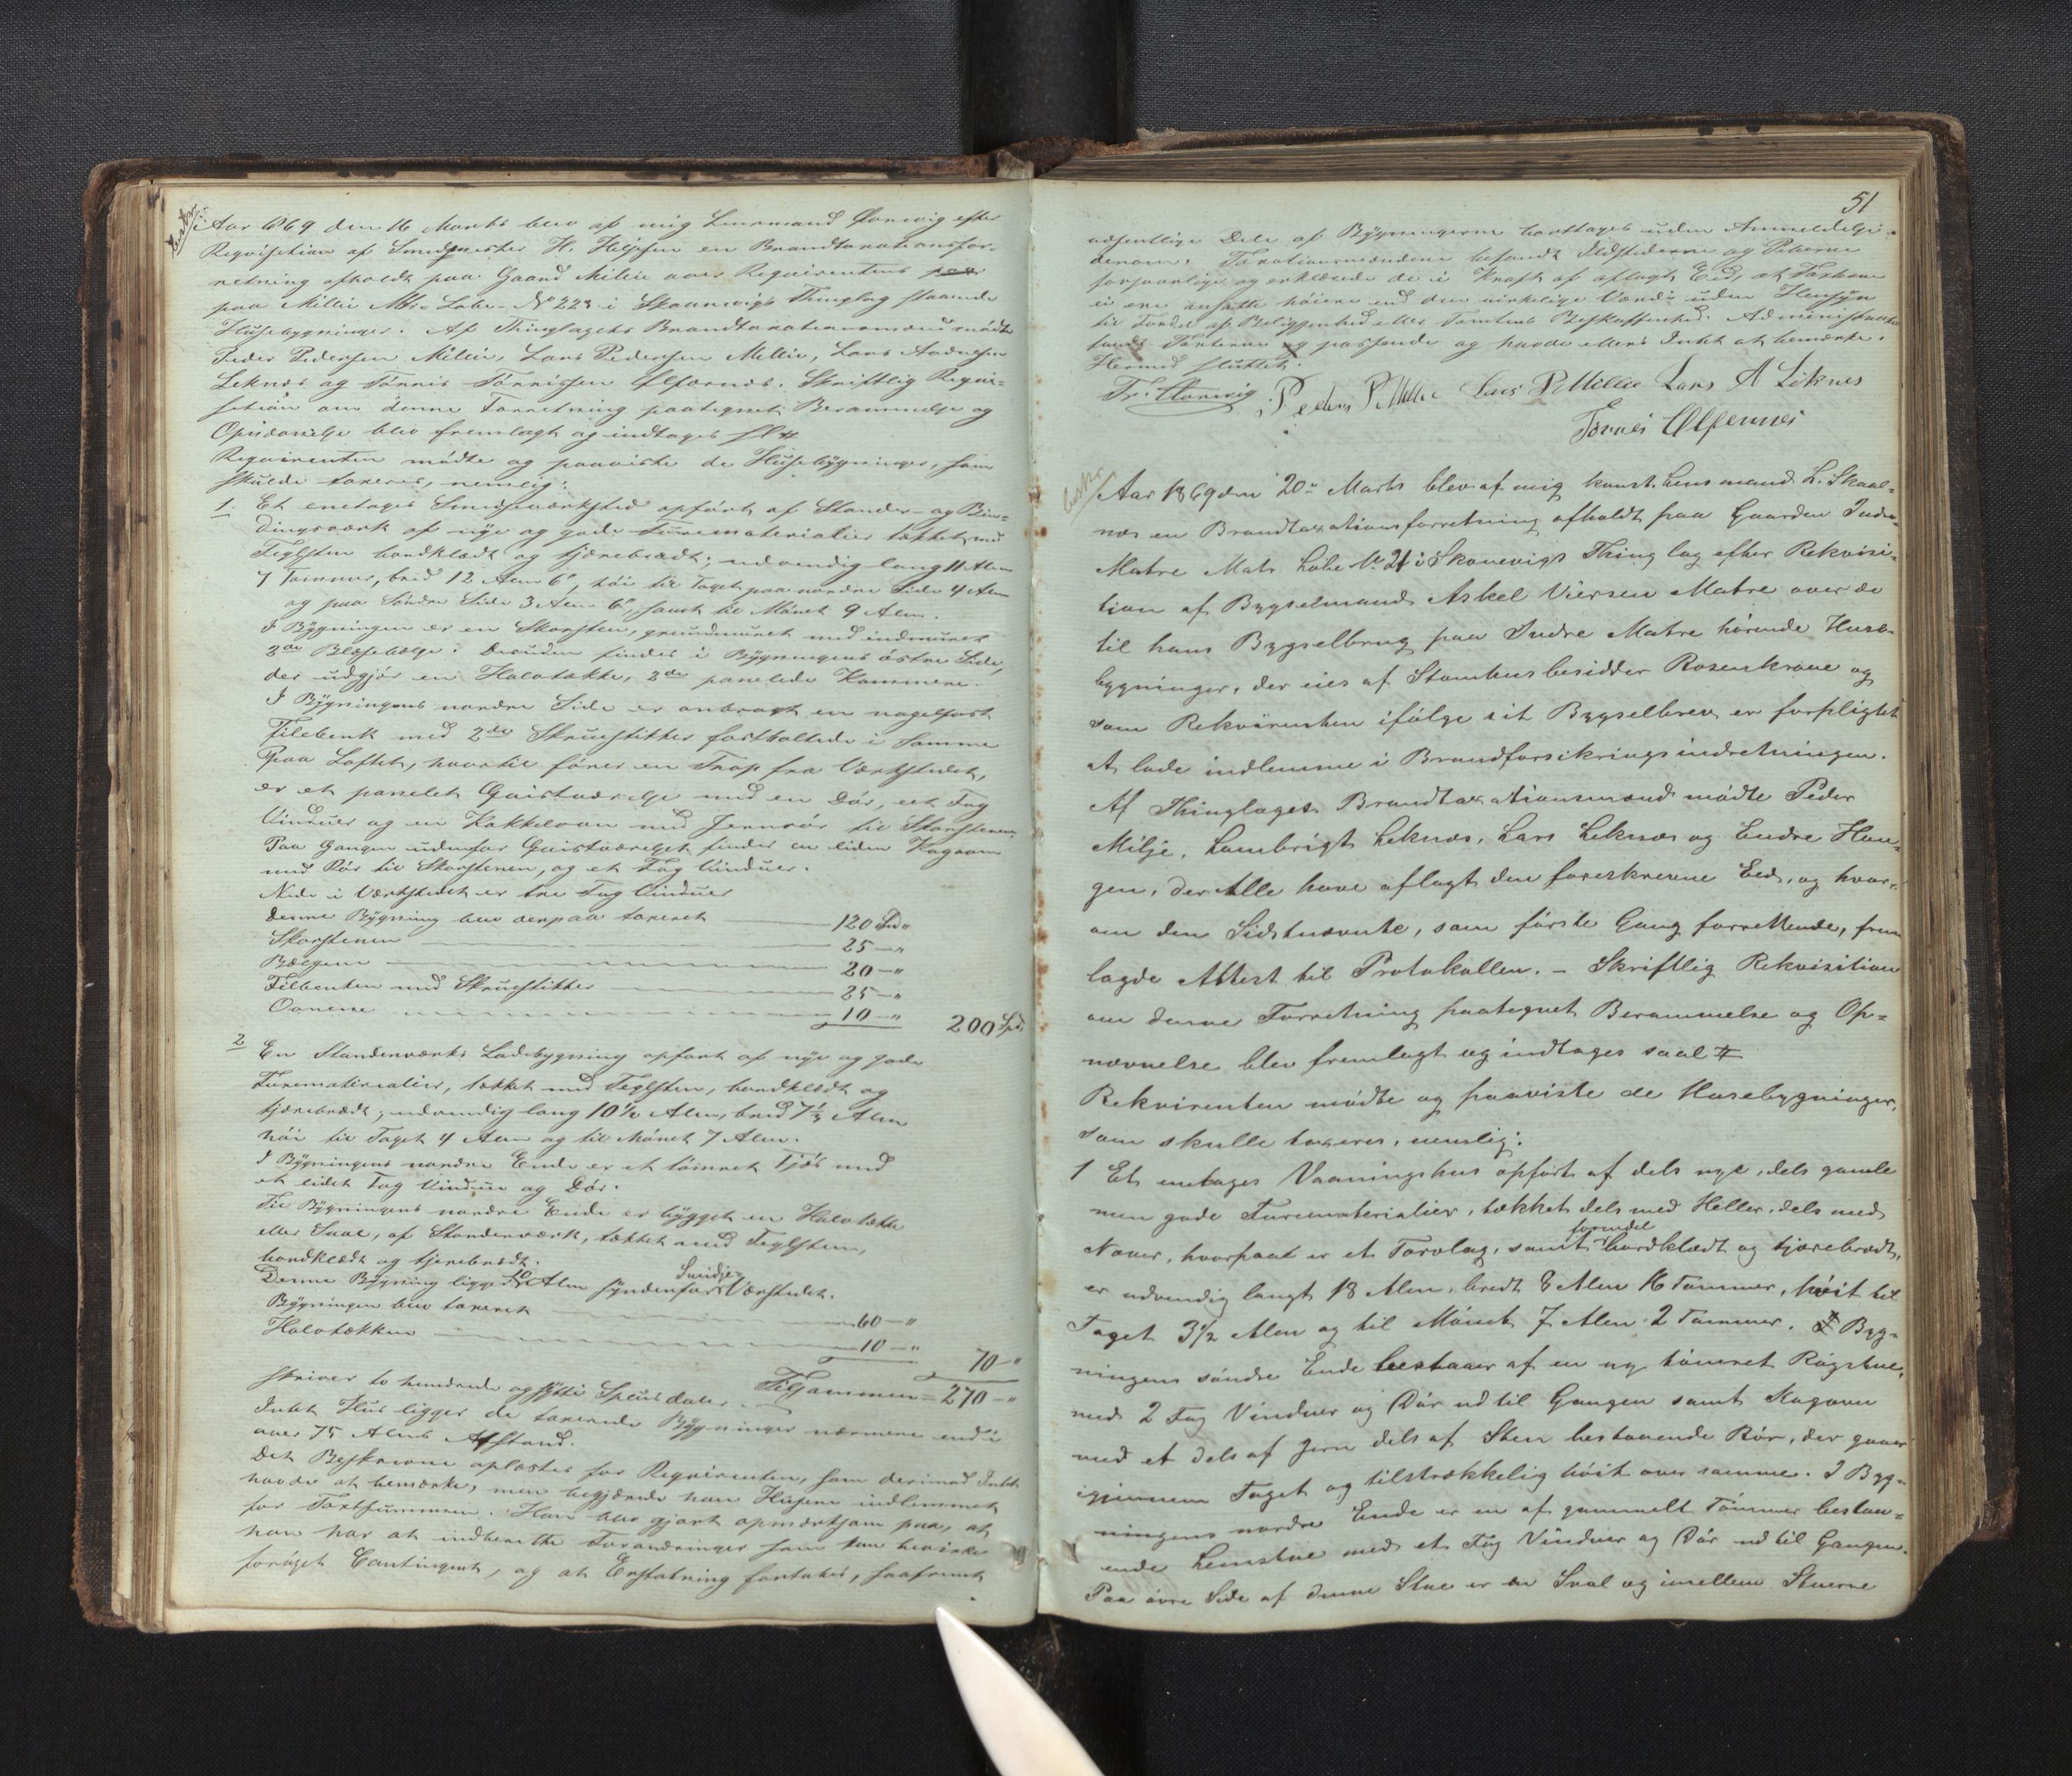 Aar 1869 den 16 Marts blev af mig Lensmand Vorwig efter
Reqvisition af Smedmester H. en Brandtaxationsfor-
retning afholdt paa Gaard Milie over Reqvirentens
paa Milie Mtr- Løbe- No 223 i Skaanevigs Thinglag staaende
Husebygninger. Af Thinglagets Brandtaxationsmænd mødte
Peder Pedersen Milie, Lars Pedersen Milie, Lars Andersen
Leknæs og Tørris Tørrissen Ølfærnæs. Skriftlig Reqvi-
sition om denne Forretning paategnet Berammelse og
Opnævnelse blev fremlagt og indtages sl #
Reqvirenten mødte og paaviste de Husebygninger, som
skulde taxeres, nemlig:
1. Et enetages Smedjeværksted opført af Stander- og Bin-
dingsværk af nye og gode Furematerialier tækket med
Teglsten bordklædt og tjærebrædt; udvendig lang 11 Alen
7 Tommer, bred 12 Alen 6", høi til Taget paa nordre Side 4 Alen
og paa Søndre Side 3 Alen 6", samt til Mønet 9 Alen.
I Bygningen er en Skorsten, grundmuret med indmuret
2de Blæsebælge. Desuden findes i Bygningens østre Side,
der udgjør en Halvtække, 2de panelede Kammere.
I Bygningens nordre Side er anbragt en nagelfast
Filebenk med 2de Skruestikker fastboltede i Samme
Paa Loftet, hvortil fører en Trap fra Værkstedet,
er et panelet Qvistværelse med en Dør, eet Fag
Vinduer og en Kakkelovn med Jernrør til Skorstenen
Paa Gangen udenfor Qvistværelset findes en liden Kogovn
med Rør til Skorstenen, og et Fag Vinduer.
Nede i Værkstedet er tre Fag Vinduer
Denne Bygning blev derpaa taxeret 120 Spd "
Skorstenen 25 - "
Bælgene 20 - "
Filbenken med Skruestikker 25 - "
Ovnene 10 - " 200 Spd
2 En Standerværks Ladebygning opført af nye og gode
Furematerialier, tækket med Teglsten, bordklædt og
tjærebrædt; udvendig lang 10½ Alen, bred 7½ Alen
høi til Taget 4 Alen og til Mønet 7 Alen.
I Bygningens nordre Ende er et tømret Fjøs med
et lidet Fag Vindue og Dør.
Til Bygningens nordre Ende er bygget en Halvtække
eller Sval, af Standerværk, tækket med Teglsten,
bordklædt og tjærebrædt.
Denne Bygning ligger 10 Alen syndenfor Smidje Værkstedet.
Bygningen blev taxeret 60 - "
Halvtækken 10 - " 70 - "
Tilsammen = 270 - "
skriver to hundrede og sytti Speciedaler.
Intet Huus ligger de taxerede Bygninger nærmere end i
over 75 Alens Afstand.
Det Beskrevne oplæstes for Reqvirenten, som derimod Intet
havde at bemærke, men begjærede han Husene indlemmet
for Taxtsummen. Han blev gjort opmærksom paa, at
han har at indberette Forandringer som kan bevirke
forøget Contingent, og at Erstatning fortabes, saafremt
51
væsentlige Dele af Bygningerne borttages uden Anmeldelse
derom. Taxationsmændene befandt Ildstederne og Piberne
forsvarlige og erklærede de i Kraft af aflagt Eed, at Taxterne
ei ere ansatte høiere end den virkelige Værdi uden Hensyn
til Fordel af Beliggenhed eller Tomtens Beskaffenhed. Administrator
fandt Taxterne passende og havde ellers Intet at bemærke.
Hermed sluttet.
Fr. Vorwig Peder P Milie Lars P Milie Lars A Leknes
Tørres Ølfernes
Aar 1869 den 20de Marts blev af mig konst. Lensmand L. Skaal-
næs en Brandtaxationsforretning afholdt paa Gaarden Indre
Matre Matr. Løbe No 21 i Skonevigs Thinglag efter Rekvisi-
tion af Bygselmand Askel Viersen Matre over de
til hans Bygselbrug paa Indre Matre hørende Huse-
bygninger, der eies af Stamhusbesidder Rosenkrone og
som Rekvirenten ifølge sit Bygselbrev er forpligtet
at lade indlemme i Brandforsikringsindretningen.
Af Thinglagets Brandtaxationsmænd mødte Peder
Milje, Lambrigt Leknæs, Lars Leknæs og Endre Hau-
gen, der Alle have aflagt den foreskrevne Eed, og hvor-
om den Sidstnævnte, som første Gang forrettende, frem
lagde Attest til Protokollen. - Skriftlig Rekvisition
om denne Forretning paategnet Berammelse og Op-
nævnelse blev fremlagt og indtages saal #
Rekvirenten mødte og paaviste de Husebygninger,
som skulle taxeres, nemlig:
1 Et enetages Vaaningshus opført af dels nye, dels gamle
men gode Furematerialier, tækket dels med Heller, dels med
Næver, hvorpaa er et Torvlag, samt forendel bordklædt og tjærebrædt,
er udvendig langt 18 Alen, bredt 8 Alen 16 Tommer, høit til
Taget 3½ Alen og til Mønet 7 Alen 2 Tommer. I Byg-
ningens søndre Ende bestaaer af en ny tømret Røgstue,
med 2 Fag Vinduer og Dør ud til Gangen samt Kogovn
med et dels af Jern dels af Sten bestaaende Rør, der gaaer
igjennem Taget og tilstrækkelig høit over samme. I Byg-
ningens nordre Ende er en af gammelt Tømmer bestaa-
ende Lemstue med et Fag Vinduer og Dør ud til Gangen.
Paa øvre Side af denne Stue er en Sval og imellem Stuerne